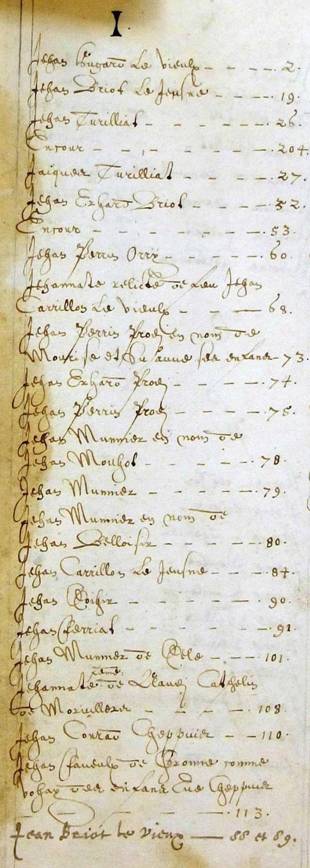 I
Jehan Hugard Le Vieulx - - - 2.
Jehan Briot Le Jeusne - - - 19.
Jehan Turilliat - - - - 26.
Encour - - - - - 204.
Jaiques Turilliat - - - - 27.
Jehan Erhard Briot - - - 52.
Encour - - - - - 53.
Jehan Perrin Orry - - - - 60.
Jehannate relicte de feu Jehan
Carrillon Le vieulx - - - 68.
Jehan Perrin en nom de
et ses enfans - 73.
Jehan Erhard - - - 74.
Jehan Perrin - - - 75.
Jehan Munnier en nom de
Jehan Mouhot - - - - 78.
Jehan Munnier - - - - 79.
Jehan Munnier en nom de
Jehan - - - - 80.
Jehan Carrillon Le Jeusne - - - 84.
Jehan - - - - 90.
Jehan Ferriat - - - - 91.
Jehan Munnier de - - - 101.
Jehannate de Cathelin
de Morvillers - - - - 108.
Jehan Conrad Cheppuier - - - 110.
Jehan de comme
des enfans Cheppuier
- - - - 113.
Jean Briot le vieux — 88 et 89.